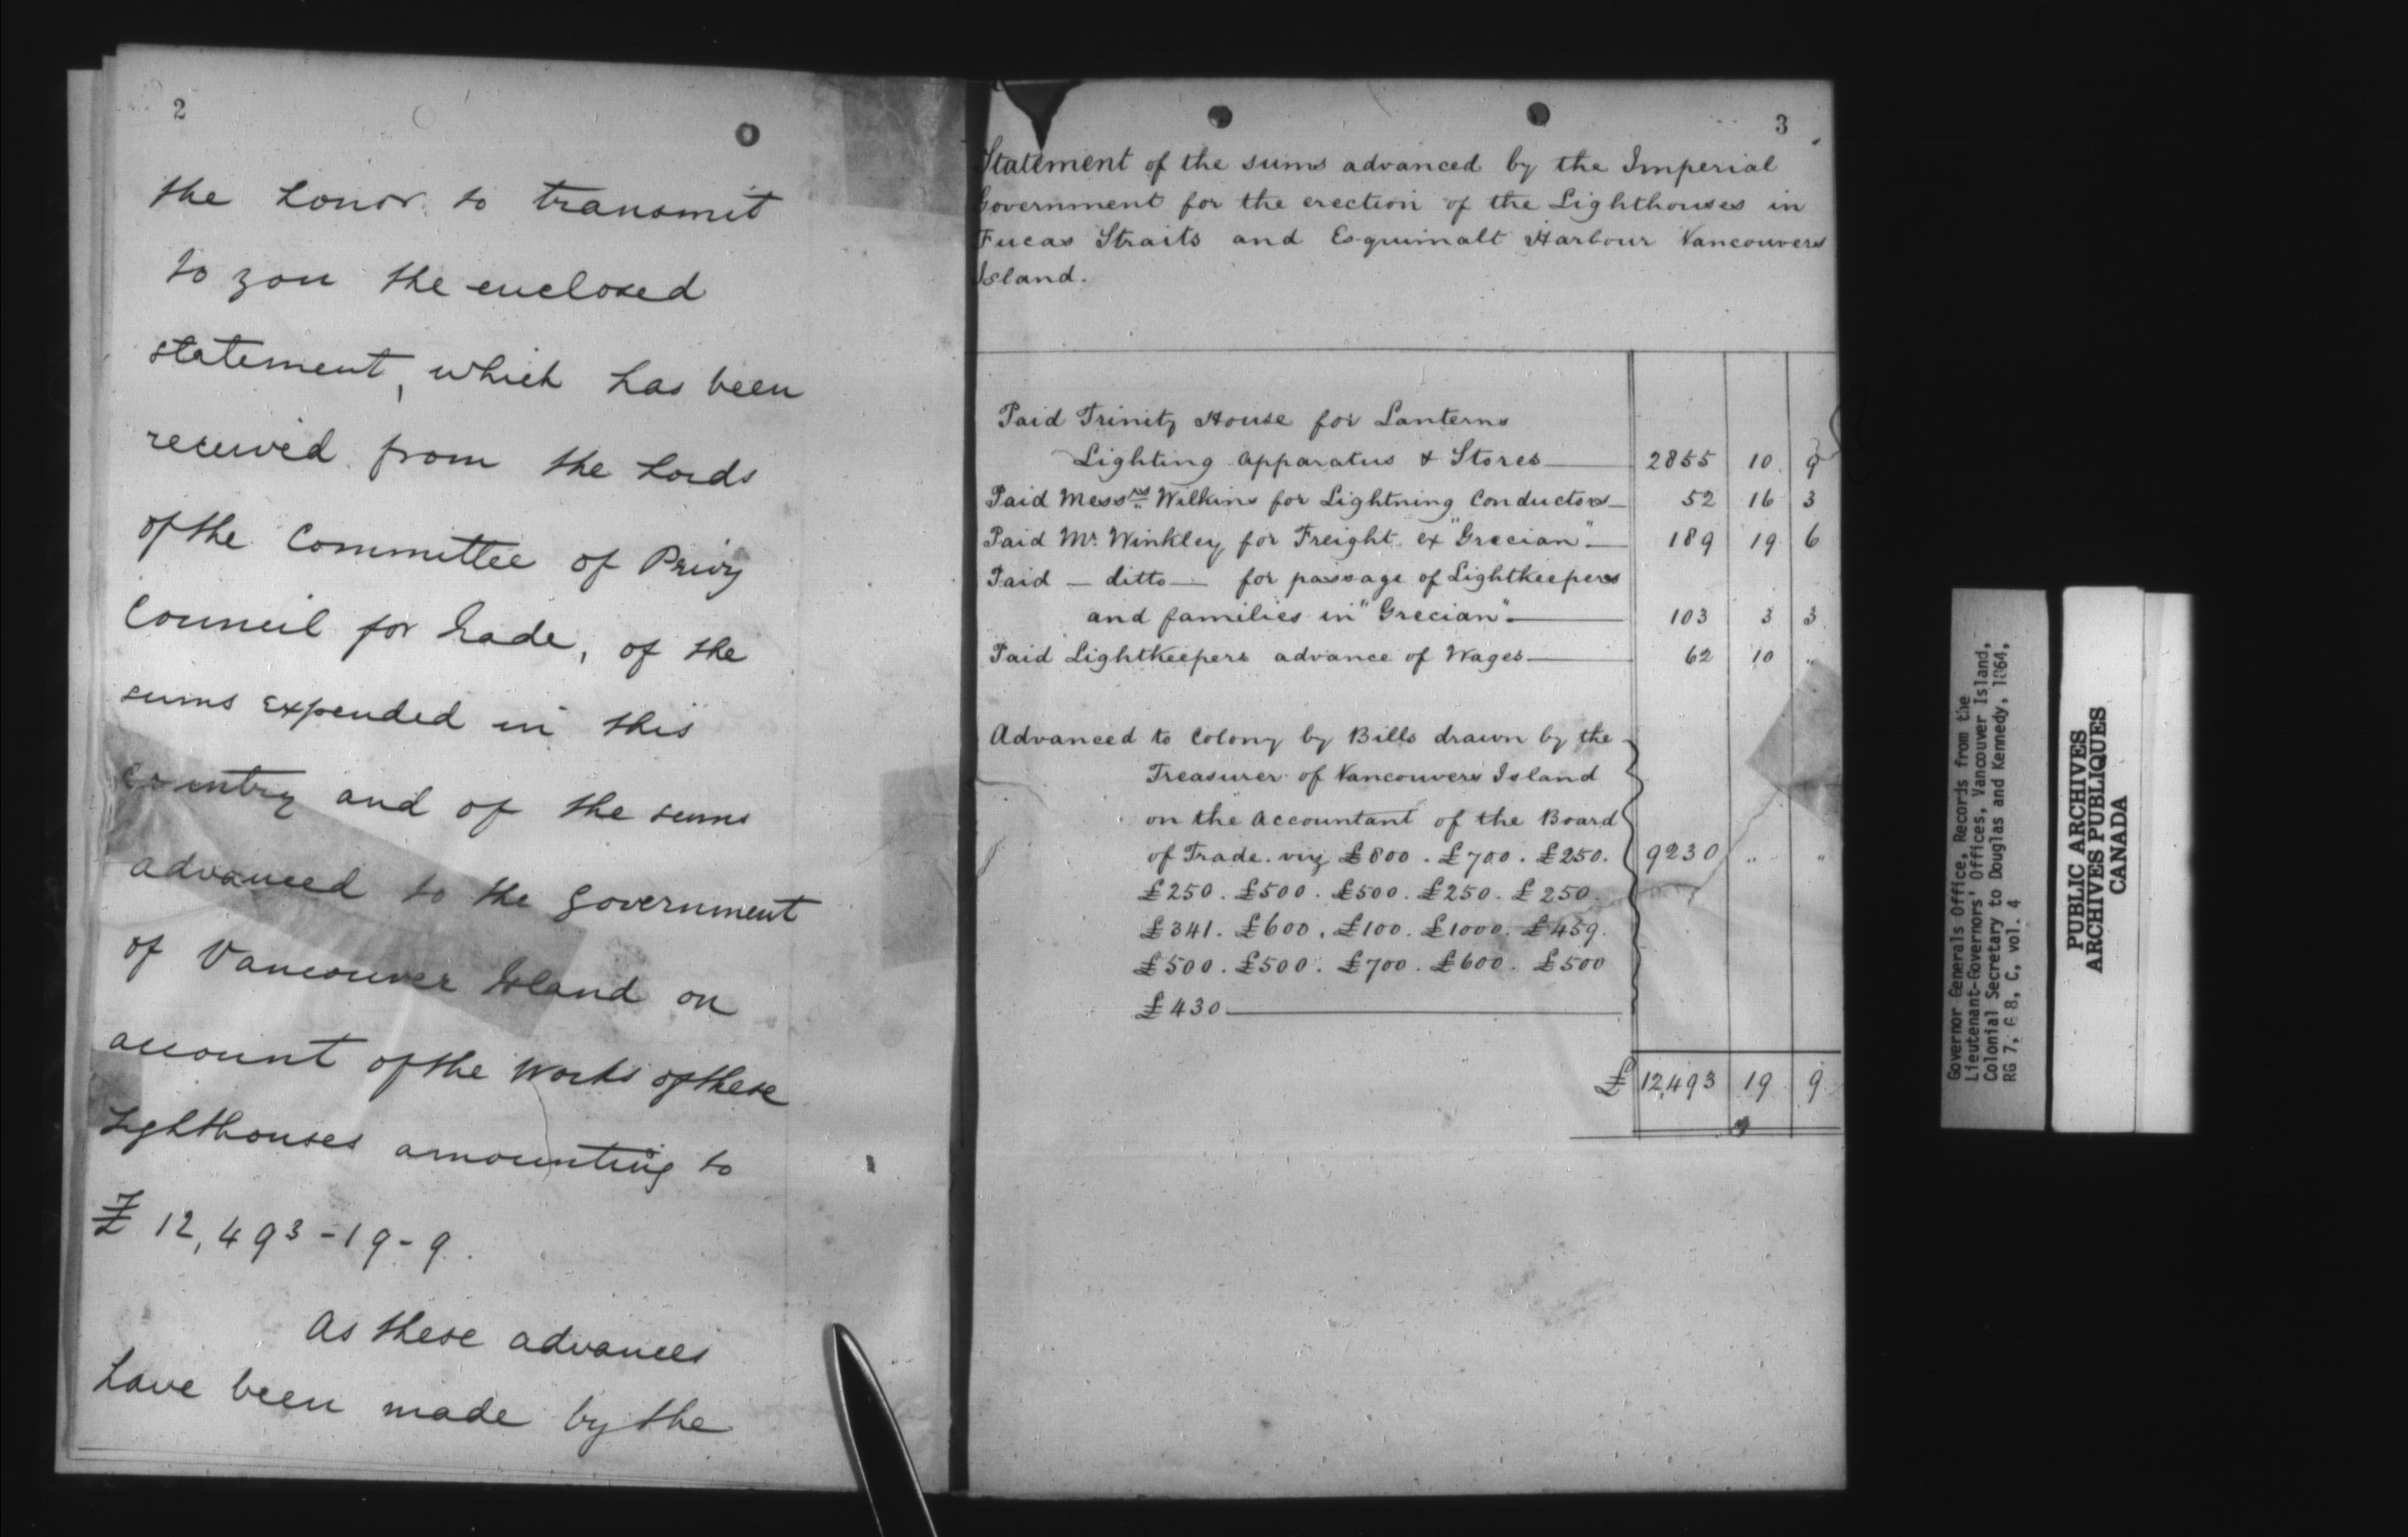 2
the honor to transmit
to you the enclosed
statement, which has been
received from the Lords
of the Committee of Privy
Council for Trade, of the
sums expended in this
Country and of the sums
advanced to the Government
of Vancouver Island on
account of the works of these
Lighthouses amounting to
£ 12,493-19-9.
As these advances
have been made by the
3
Statement of the sums advanced by the Imperial
Government for the erection of the Lighthouses in
Fucas Straits and Esquimalt Harbour Vancouvers
Island.
Paid Trinity House for Lanterns
Lighting Apparatus & Stores 2855 10. 9
Paid Messrs Wilkins for Lightning Conductors 52 16 3
Paid Mr. Winkley for Freight ex "Grecian" 189 19 6
Paid — ditto — for passage of Lightkeepers
and families in "Grecian" 103 3 3
Paid Lightkeepers advance of Wages 62 10 "
Advanced to Colony by Bills drawn by the
Treasurer of Vancouvers Island
on the Accountant of the Board
of Trade. viz £800. £700. £250. 9230 " "
£250. £500. £500. £250. £250.
£341. £600. £100. £1000. £459.
£500. £500. £700. £600. £500
£430
£ 12,493 19 9
Governor Generals Office, Records from the
Lieutenant-Governors' Offices, Vancouver Island,
Colonial Secretary to Douglas and Kennedy, 1864,
RG 7, G 8, C, vol. 4
PUBLIC ARCHIVES
ARCHIVES PUBLIQUES
CANADA